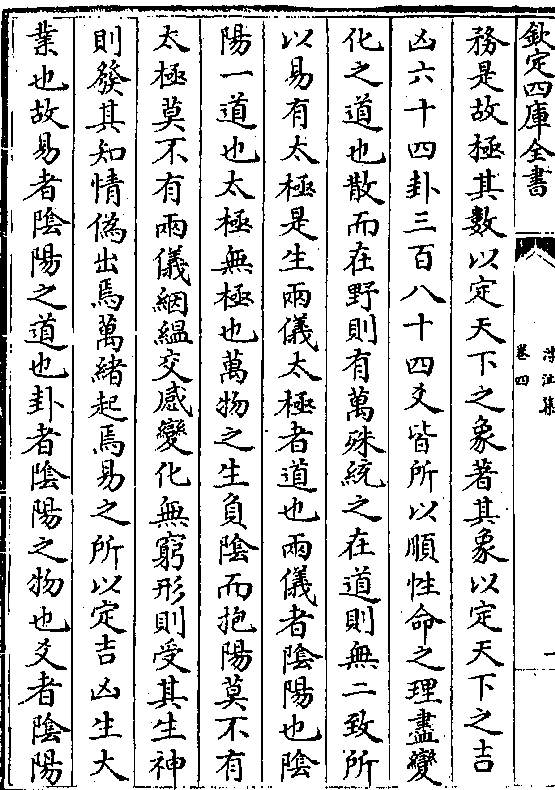 欽定四庫全書
卷四
務是故極其數以定天下之象著其象以定天下之吉
凶六十四卦三百八十四爻皆所以順性命之理盡變
化之道也散而在野則有萬殊統之在道則無二致所
以易有太極是生兩儀太極者道也兩儀者陰陽也陰
陽一道也太極無極也萬物之生負陰而抱陽莫不有
太極莫不有兩儀絪縕交感變化無窮形則受其生神
則發其知情偽出焉萬緒起焉易之所以定吉凶生大
業也故易者陰陽之道也卦者陰陽之物也爻者陰陽